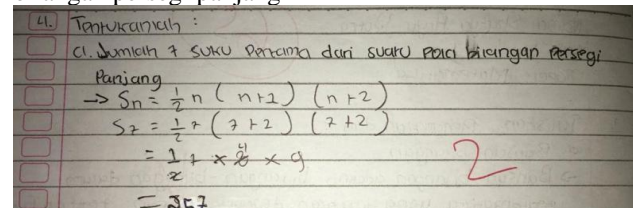 4. Tentukanlah :
a. Jumlah 7 suku pertama dari suatu pola bilangan Persegi
Panjang
→ Sn = 1/2 n ( n+2 ) ( n+2 )
S7 = 1/2 7 ( 7+2 ) ( 7+2 )
= 1/2 7 × 8 4 × 9
= 257
2